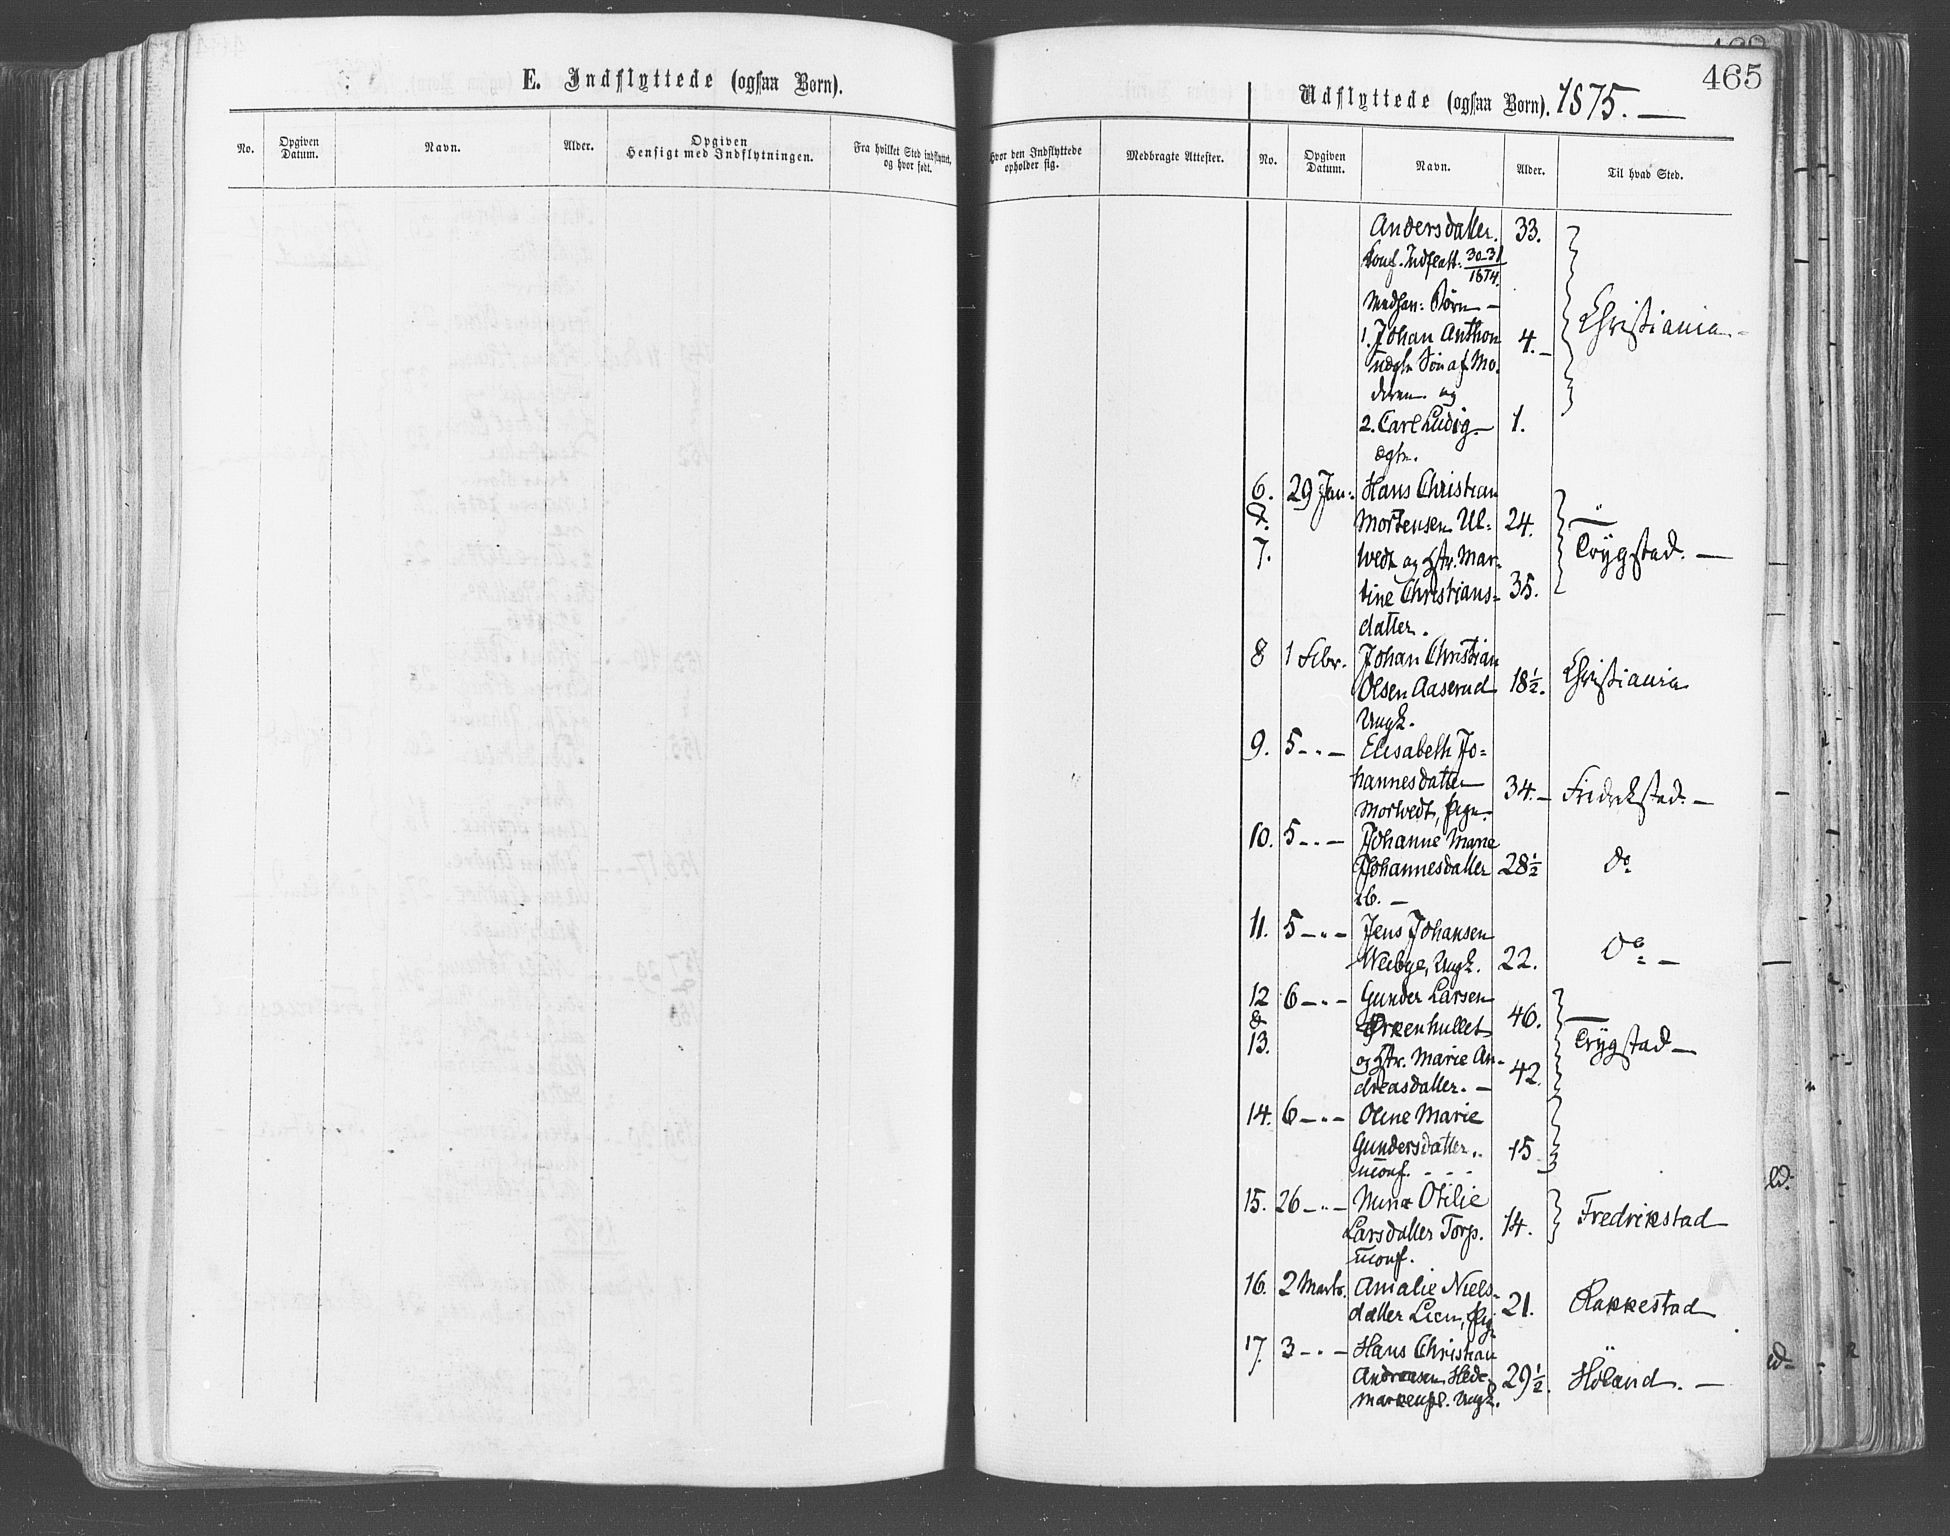 E. Indflyttede (ogsaa Børn).
No.
Opgiven
Datum.
Navn.
Alder.
Opgiven
Hensigt med Indflytningen.
Fra hvilket Sted indflyttet,
og hvor født.
465
Udflyttede (ogsaa Børn). 1875. —
Hvor den Indflyttede
opholder sig.
Medbragte Attester.
No.
Opgiven
Datum.
Navn.
Alder.
Til hvad Sted.
Andersdatter. 33.
30-31
1874.
Børn —
1. Johan Anthon 4. — Christiania
uægte Søn af Mo-
deren og
2. Carl Ludvig — 1.
ægte.
6. 29 Jan: Hans Christian
& Mortensen Ul- 24.
7. vedt og Hstr. Mar- Trygstad. —
tine Christians- 35.
datter.
8 1 Febr. Johan Christian
Olsen Aaserud 18½. Christiania
Ungk.
9. 5 — „ — Elisabeth Jo-
hannesdatter 34. — Fredrikstad. —
Mortvedt, Pige. —
10. 5 — „ — Johanne Marie
Johannesdatter 28½ do
ib. —
11. 5 — „ — Jens Johansen
Ungk. 22. do —
12 6 — „ — Gunder Larsen
& 46.
13. og Hstr. Marie An- Trygstad —
dreasdatter. — 42.
14. 6 — „ — Olene Marie
Gundersdatter 15
uconf. - - -
15. 26 — „ — Mina Otilie
Larsdatter Torp. 14. Fredrikstad
uconf.
16. 2 Marts. Amalie Niels-
datter Lien, Pige 21. Rakkestad
17. 3 — „ — Hans Christian
Andreasen Hede- 29½. Høland. —
markenpl. Ungk.